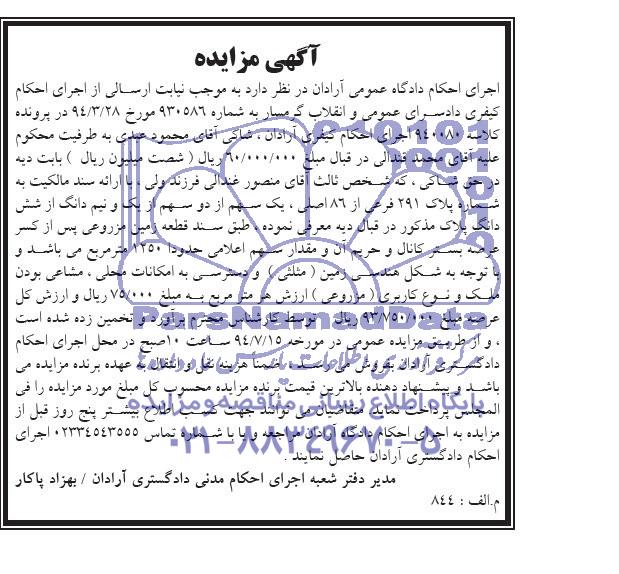 آگهی مزایده
اجرای احکام دادگاه عمومی آرادان در نظر دارد به موجب نیابت ارسالی از اجرای احکام
کیفری دادسرای عمومی و انقلاب گرمسار به شماره ۹۳۰۵۸۶ مورخ ۹۴/۳/۲۸ در پرونده
کلاسه ۹۴۰۰۸۰ اجرای احکام کیفری آرادان ، شاکی آقای محمود عبدی به طرفیت محکوم
علیه آقای محمد قندالی در قبال مبلغ ۶۰/۰۰۰/۰۰۰ ریال ( شصت میلیون ریال ) بابت دیه
در حق شاکی ، که شخص ثالث آقای منصور غندالی فرزند ولی ، با ارائه سند مالکیت به
شماره پلاک ۲۹۱ فرعی از ۸۶ اصلی ، یک سهم از دو سهم از یک و نیم دانگ از شش
دانگ پلاک مذکور در قبال دیه معرفی نموده . طبق سند قطعه زمین مزروعی پس از کسر
عرصه بستر کانال و حریم آن و مقدار سهم اعلامی حدودا ۱۲۵۰ مترمربع می باشد و
با توجه به شکل هندسی زمین ( مثلثی ) و دسترسی به امکانات محلی ، مشاعی بودن
ملک و نوع کاربری ( مزروعی ) ارزش هر متر مربع به مبلغ ۷۵/۰۰۰ ریال و ارزش کل
عرصه مبلغ ۹۳/۷۵۰/۰۰۰ ریال توسط کارشناس محترم برآورد و تخمین زده شده است
، و از طریق مزایده عمومی در مورخه ۹۴/۷/۱۵ ساعت ۱۰صبح در محل اجرای احکام
دادگستری آرادان بفروش می رسد . ضمنا هزینه نقل و انتقال به عهده برنده مزایده می
باشد و پیشنهاد دهنده بالاترین قیمت برنده مزایده محسوب کل مبلغ مورد مزایده را فی
المجلس پرداخت نماید. متقاضیان می توانند جهت کسب اطلاع بیشتر پنج روز قبل از
مزایده به اجرای احکام دادگاه آرادان مراجعه و یا با شماره تماس ۰۲۳۳۴۵۴۳۵۵۵ اجرای
احکام دادگستری آرادان حاصل نمایند .
مدیر دفتر شعبه اجرای احکام مدنی دادگستری آرادان / بهزاد پاکار
م.الف : ۸۴۴
ParsNamadData
پایگاه اطلاع رسانی مناقصه و مزایده
۰۲۱-۸۸۳۴۹۶۷۰-۵